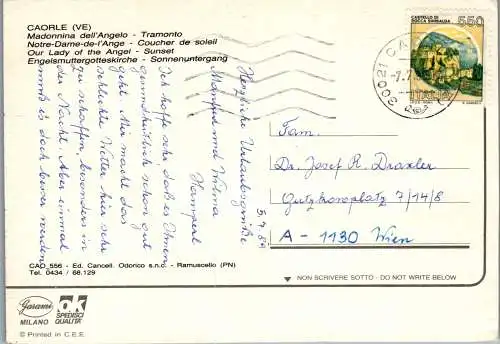 CAORLE (VE)
Madonnina dell'Angelo - Tramonto
Notre-Dame-de-l'Ange - Coucher de soleil
Our Lady of the Angel - Sunset
Engelsmuttergotteskirche - Sonnenuntergang
550
CASTELLO DI
ROCCA SINIBALDA
ITALIA
30021 CA
-7.7
Herzliche Urlaubsgrüße
Manfred und Wilma
Hamperl
5.7.89
Ich hoffe sehr daß es Ihnen
gesundheitlich schon gut
geht. Mir macht das
schlechte Wetter hier sehr
zu schaffen, besonders in
der Nacht. Aber einmal
muß es doch besser werden
Fam.
Dr. Josef R. Draxler
Gutzkowplatz 7/14/8
A - 1130 Wien
CAO 556 - Ed. Cancell. Odorico s.n.c. - Ramuscello (PN)
Tel. 0434 / 68.129
NON SCRIVERE SOTTO - DO NOT WRITE BELOW
Garami
MILANO
ok
SPEDISCI
QUALITÀ
© Printed in C.E.E.